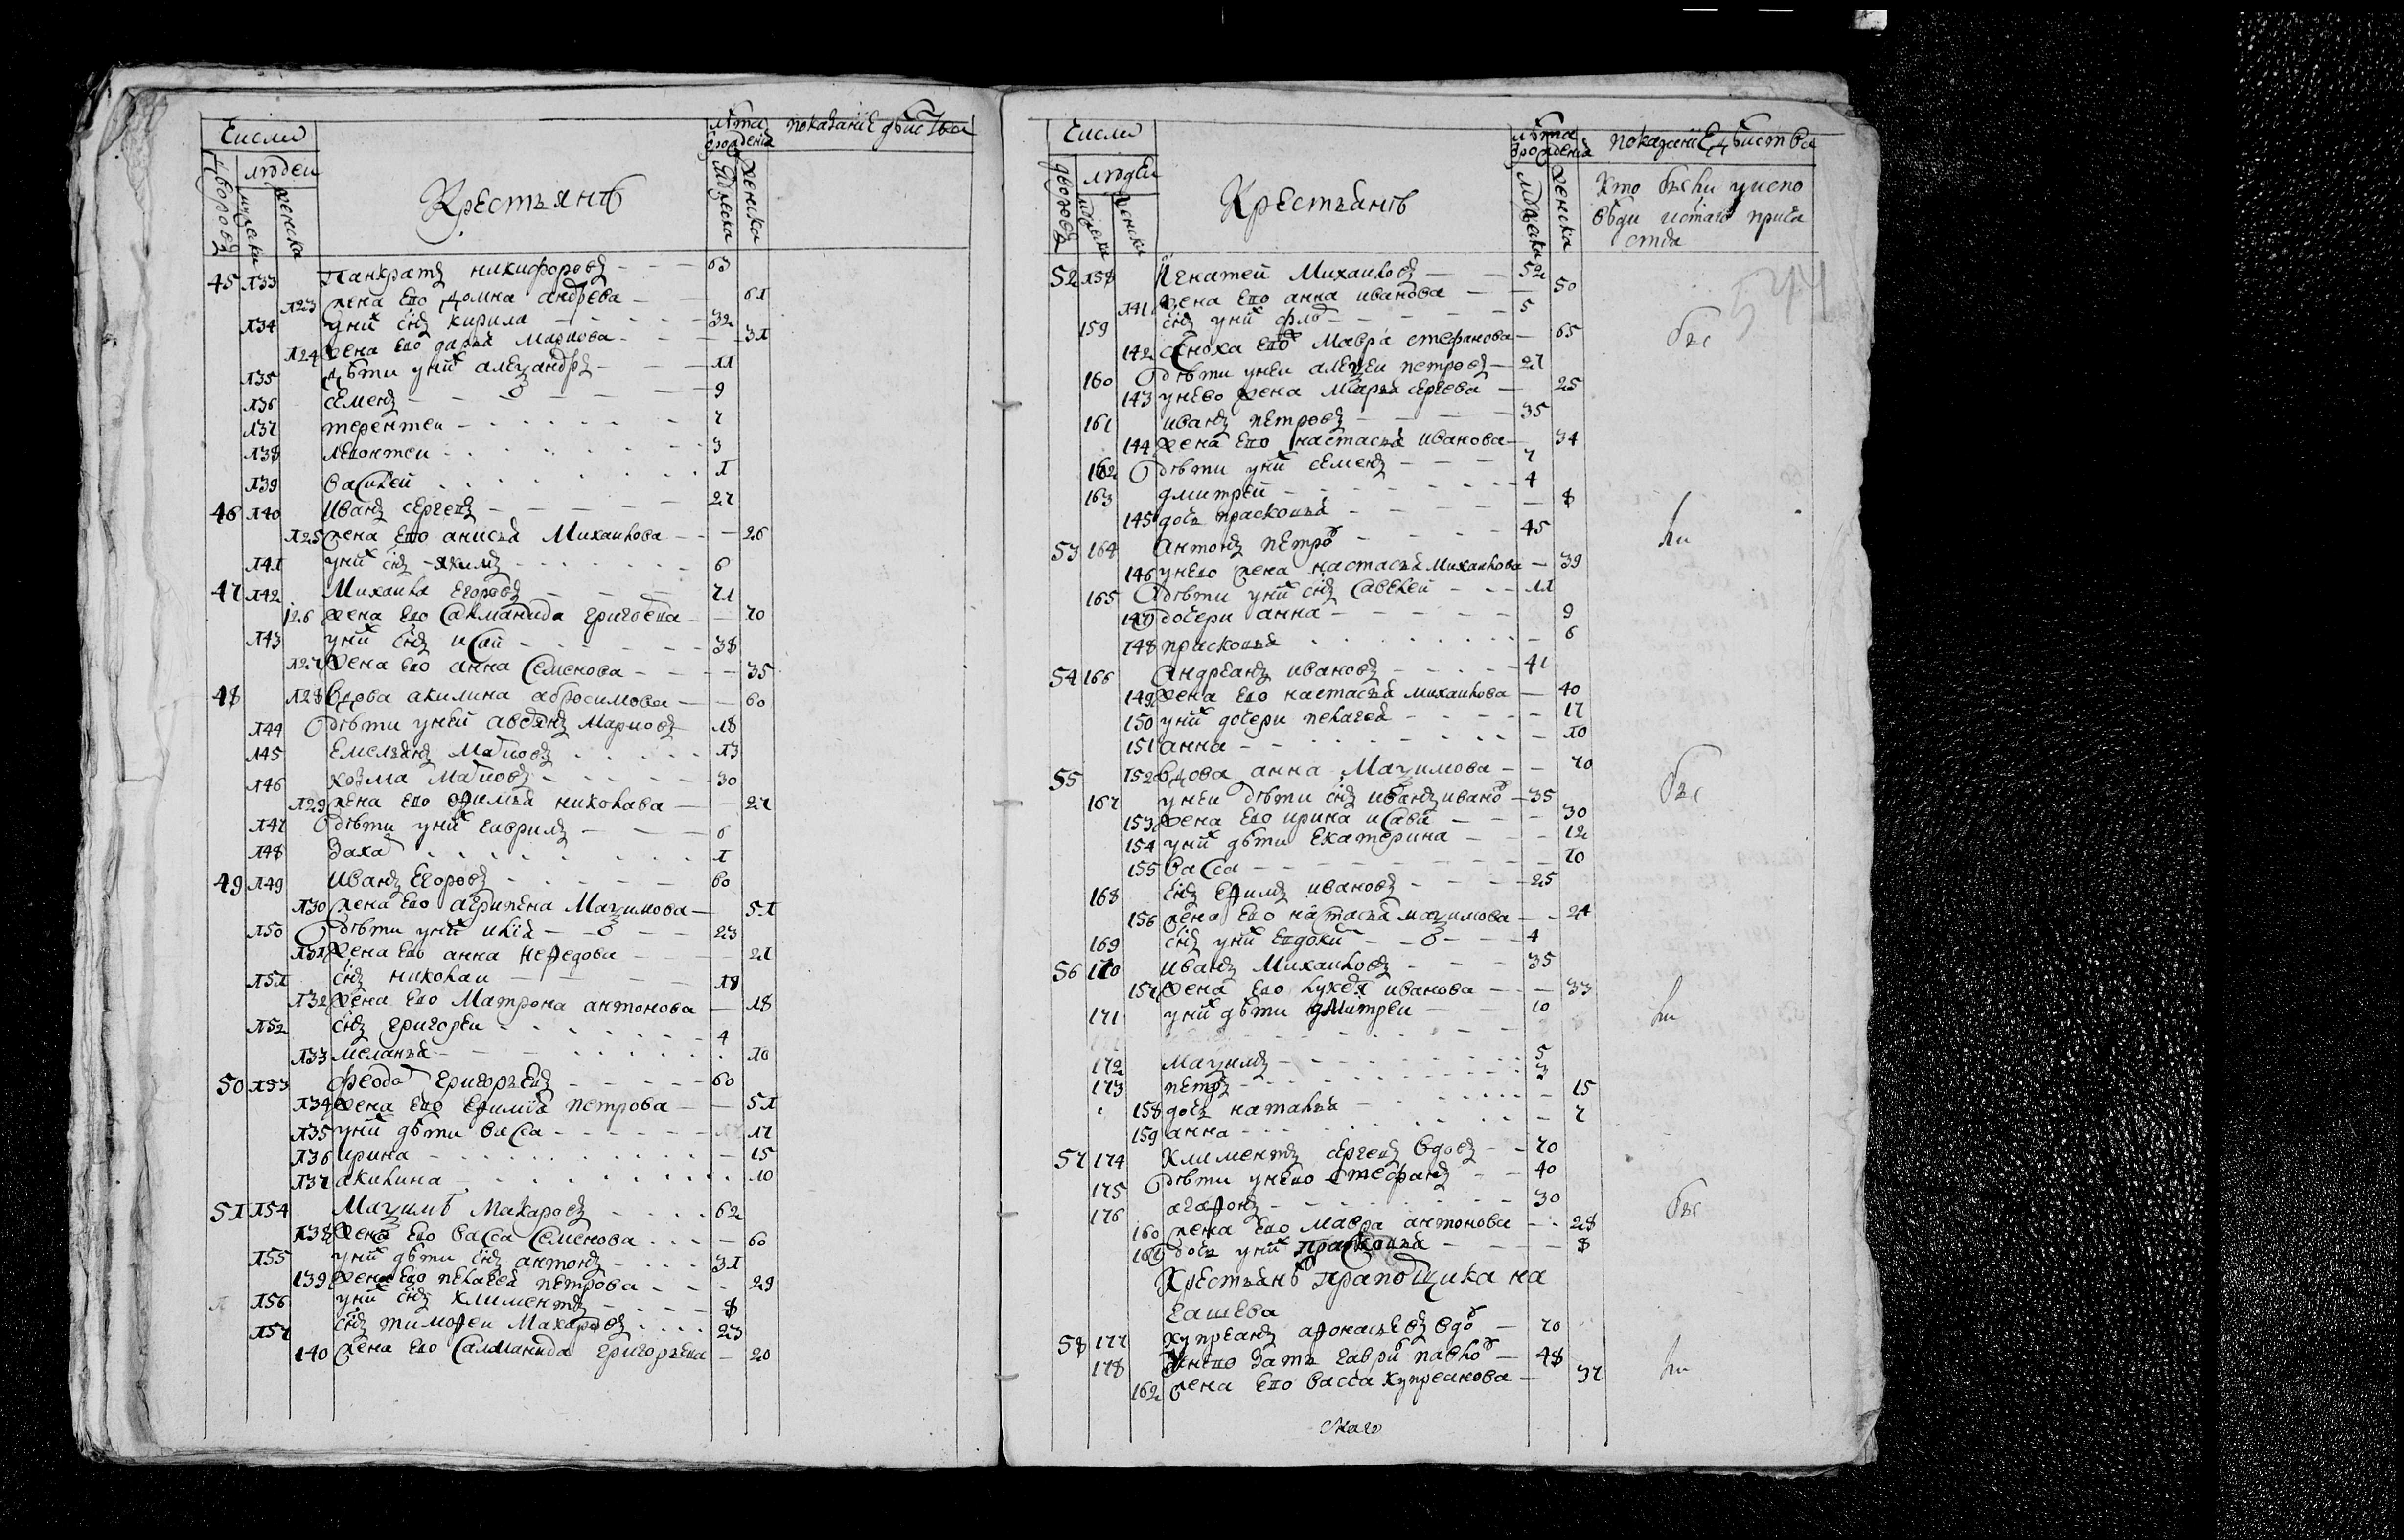 Числи
людеи
дворовъ
мужеска
женска
Крестьянъ
лѣта
рождениѧ
мужеска
женска
показание дѣйства
45 133 Панкратъ никифоровъ 63
123 жена ево домна андрѣева 61
134 унихъ снъ кирила 32
124 жена ево дарья Маркова 31
135 дѣти унихъ алеѯандръ 11
136 семенъ 9
137 терентеи 7
138 левонтеи 3
139 василей 1
46 140 Иванъ сергеевъ 27
125 жена ево анисья Михаилова 26
141 унихъ снъ якимъ 6
47 142 Михаила Егоровъ 71
126 жена ево Саломанида григоева 70
143 унихъ снъ исаи 38
127 жена ево анна Семенова 35
48 128 вдова акилина абросимова 60
144 дѣти уней авсѣнъ Марковъ 18
145 Емельянъ Марковъ 13
146 козма Марковъ 30
129 жена ево офимья николава 27
147 дѣти унихъ гаврилъ 6
148 Захар 1
49 149 Иванъ Егоровъ 60
130 жена ево агрипена Маѯимова 51
150 дѣти унихъ илья 23
131 жена ево анна Нефедова 21
151 снъ николаи 18
132 жена ево Матрона антонова 18
152 снъ григореи 4
133 меланья 10
50 153 федот григорьевъ 60
134 жена ево Ефимия петрова 51
135 унихъ дѣти васса 17
136 ирина 15
137 акилина 10
51 154 Маѯимъ Макаровъ 62
138 жена ево васса Семенова 60
155 унихъ дѣти снъ антонъ 31
139 жена ево пелагея петрова 29
156 унихъ снъ климентъ 8
157 снъ тимофеи Макаровъ 23
140 жена ево Саломанида григорьева 20
Числи
людеи
дворовъ
мужеска
женска
Крестьянъ
лѣта
рождениѧ
мужеска
женска
показание дѣйства
Кто были уиспо
вѣди истаго прича
стиа
544
52 158 Игнатей Михаиловъ 52
141 жена ево анна иванова 50
159 снъ унихъ флор 5
142 сноха ево Мавра степанова 65
бы
160 дѣти унеи алеѯеи петровъ 27
143 унево жена Марья сергева 25
161 иванъ петровъ 35
144 жена ево настасья иванова 34
162 дѣти унихъ семенъ 7
163 дмитреи 4
145 дочь прасковья 8
53 164 Антонъ петров 45
ли
146 унево жена настасья Михаилова 39
165 дѣти унихъ снъ савелеи 11
147 дочери анна 9
148 прасковья 6
54 166 Андреанъ ивановъ 41
149 жена ево настасья михаилова 40
150 унихъ дочери пелагея 17
151 анна 10
55 152 вдова анна Маѯимова 70
бы
167 унеи дѣти снъ иванъ иванов 35
153 жена ево ирина исаева 30
154 унихъ дѣти Екатерина 12
155 васса 10
168 снъ Ефимъ ивановъ 25
156 жена ево настасья маѯимова 24
169 снъ унихъ Евдоким 4
56 170 иванъ Михаиловъ 35
157 жена ево лукеря иванова 33
ли
171 унихъ дѣти дмитреи 10
172 Маѯимъ 5
173 петръ 3
158 дочь наталья 15
159 анна 7
57 174 Климентъ сергеевъ вдовъ 70
175 дѣти унево стефанъ 40
176 агафонъ 30
бы
160 жена ево мавра антонова 28
161 дочь унихъ прасковья 8
Крестьянъ прапорщика на
гашева
58 177 Купреанъ афонасьевъ вдов 70
178 Унево зять гаврил павлов 48
ли
162 жена ево васса купреанова 37